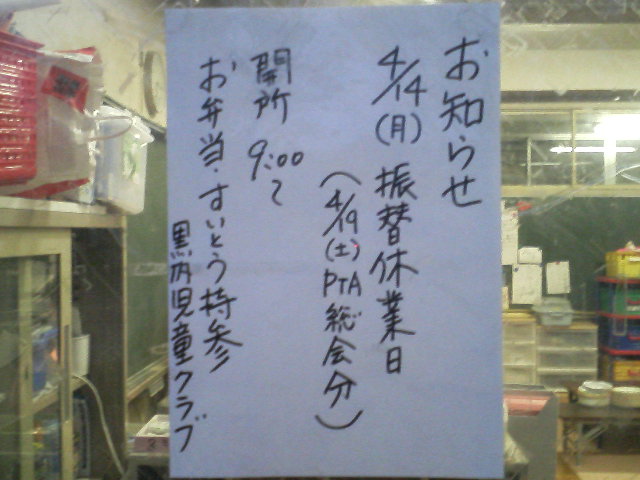 お知らせ
4/14(月) 振替休業日
(4/19(土)PTA総会分)
開所 9:00〜
お弁当・すいとう持参
黒内児童クラブ